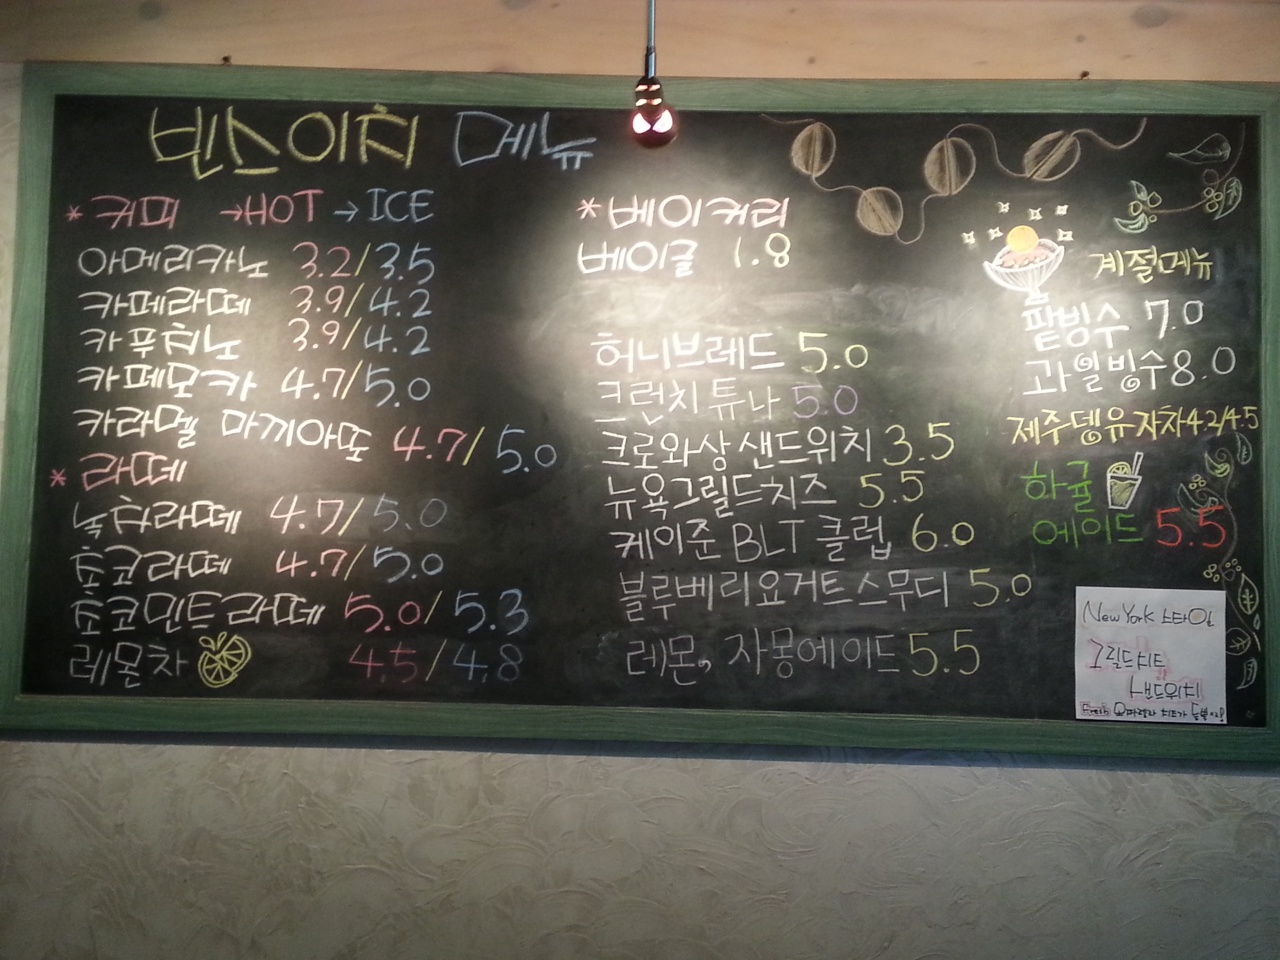 빈스이치 메뉴
*커피 →HOT →ICE
아메리카노 3.2/3.5
카페라떼 3.9/4.2
카푸치노 3.9/4.2
카페모카 4.7/5.0
카라멜 마끼아또 4.7/5.0
*라떼
녹차라떼 4.7/5.0
초코라떼 4.7/5.0
초코민트라떼 5.0/5.3
레몬차 4.5/4.8
*베이커리
베이글 1.8
허니브레드 5.0
크런치 튜나 5.0
크로와상 샌드위치 3.5
뉴욕그릴드치즈 5.5
케이준 BLT 클럽 6.0
블루베리요거트스무디 5.0
레몬, 자몽에이드 5.5
계절메뉴
팥빙수 7.0
과일빙수 8.0
제주뎅유자차 4.2/4.5
하귤
에이드 5.5
New York 스타일
그릴드치즈
샌드위치
Fresh 모짜렐라 치즈가 듬뿍